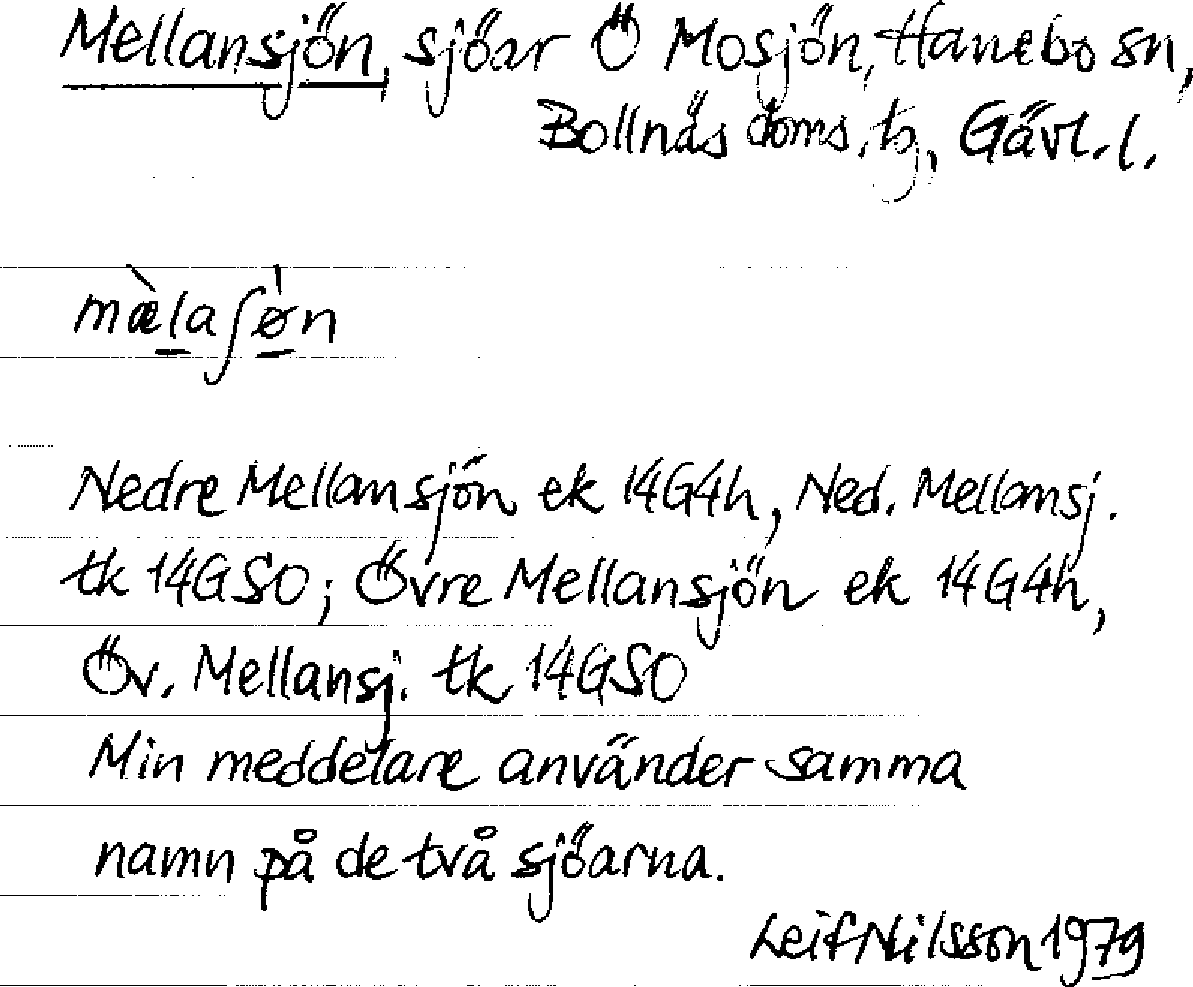 Mellansjön, sjöar Ö Mosjön, Hanebo sn,
Bollnäs doms. tg, Gävl. l.
mæ̀la̠ʃø̠̀n
Nedre Mellansjön ek 14G4h, Ned. Mellansj.
tk 14GSO; Övre Mellansjön ek 14G4h,
Öv. Mellansj. tk 14GSO
Min meddelare använder samma
namn på de två sjöarna.
Leif Nilsson 1979